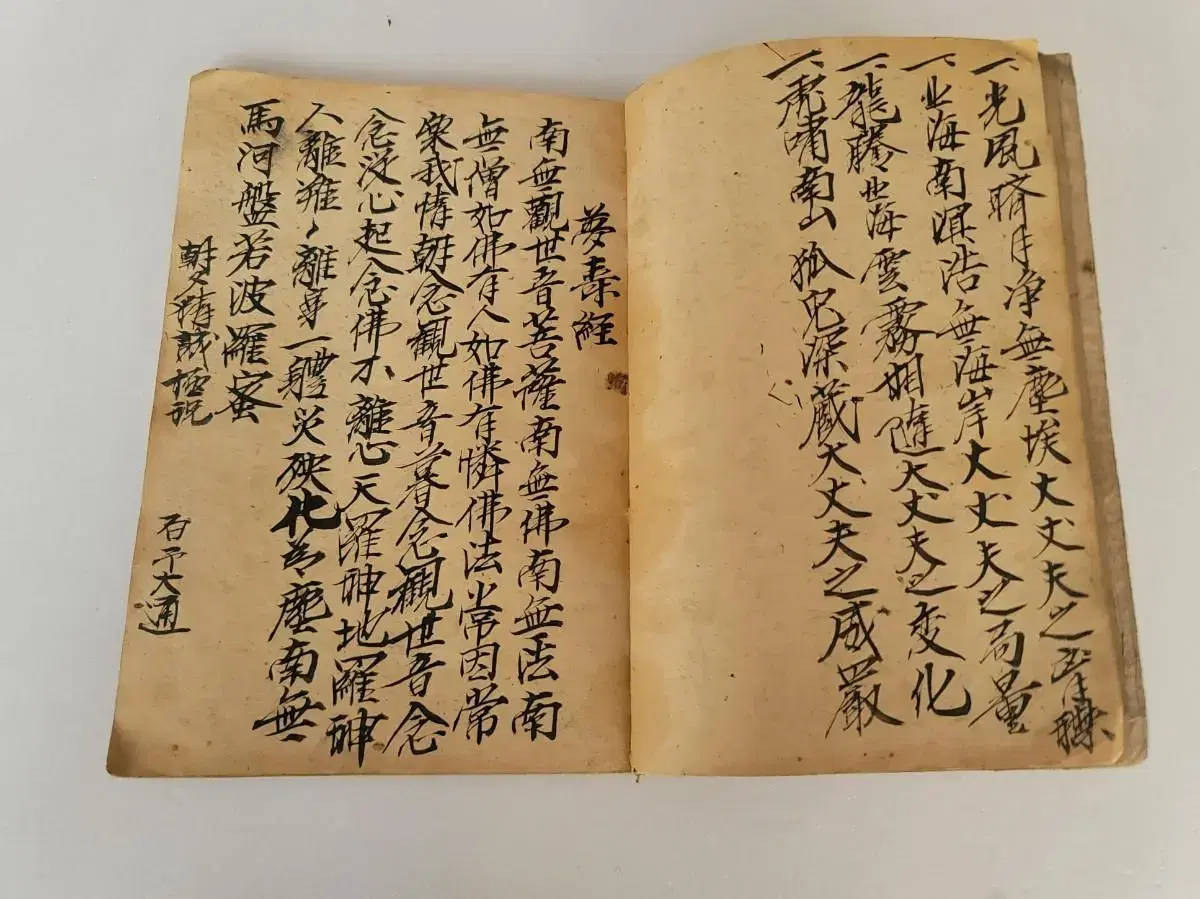 一、光風臍月净無塵埃大丈夫之
一、北海南溟浩無海岸大丈夫之局量
一、龍騰北海雲霧相随大丈夫之変化
一、虎嘯南山狐兒深藏大丈夫之威嚴
夢壽経
南無觀世音菩薩南無佛南無法南
無僧如佛有人如佛有憐佛法常因常
樂我情朝念觀世音暮念觀世音念
念従心起念佛不離心天羅神地羅神
人離难〻離身一體災殃化為塵南無
馬河盤若波羅蜜
朝夕精誠極説
石予大通